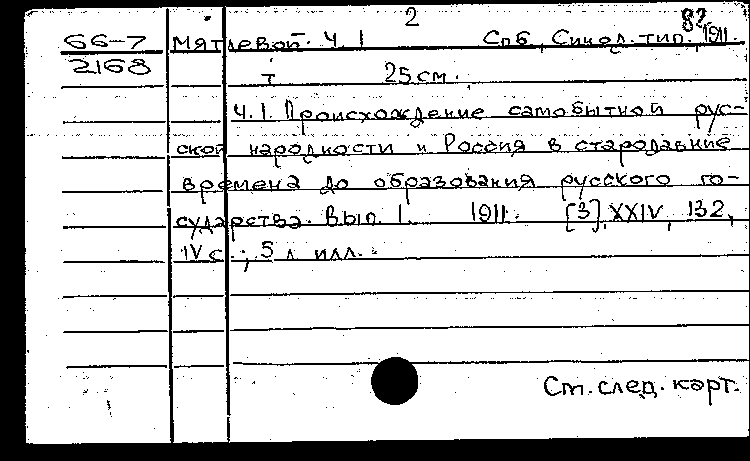 2 82
66-7 Мятлевой. Ч. 1 Спб, Синод. тип., 1911.
2168 т 25 см.
Ч. 1. Происхождение самобытной рус-
ской народности и Россия в стародавние
времена до образования русского го-
сударства. Вып. 1. 1911. [3], XXIV, 132,
IV с.; 5 л. илл.
См. след. карт.